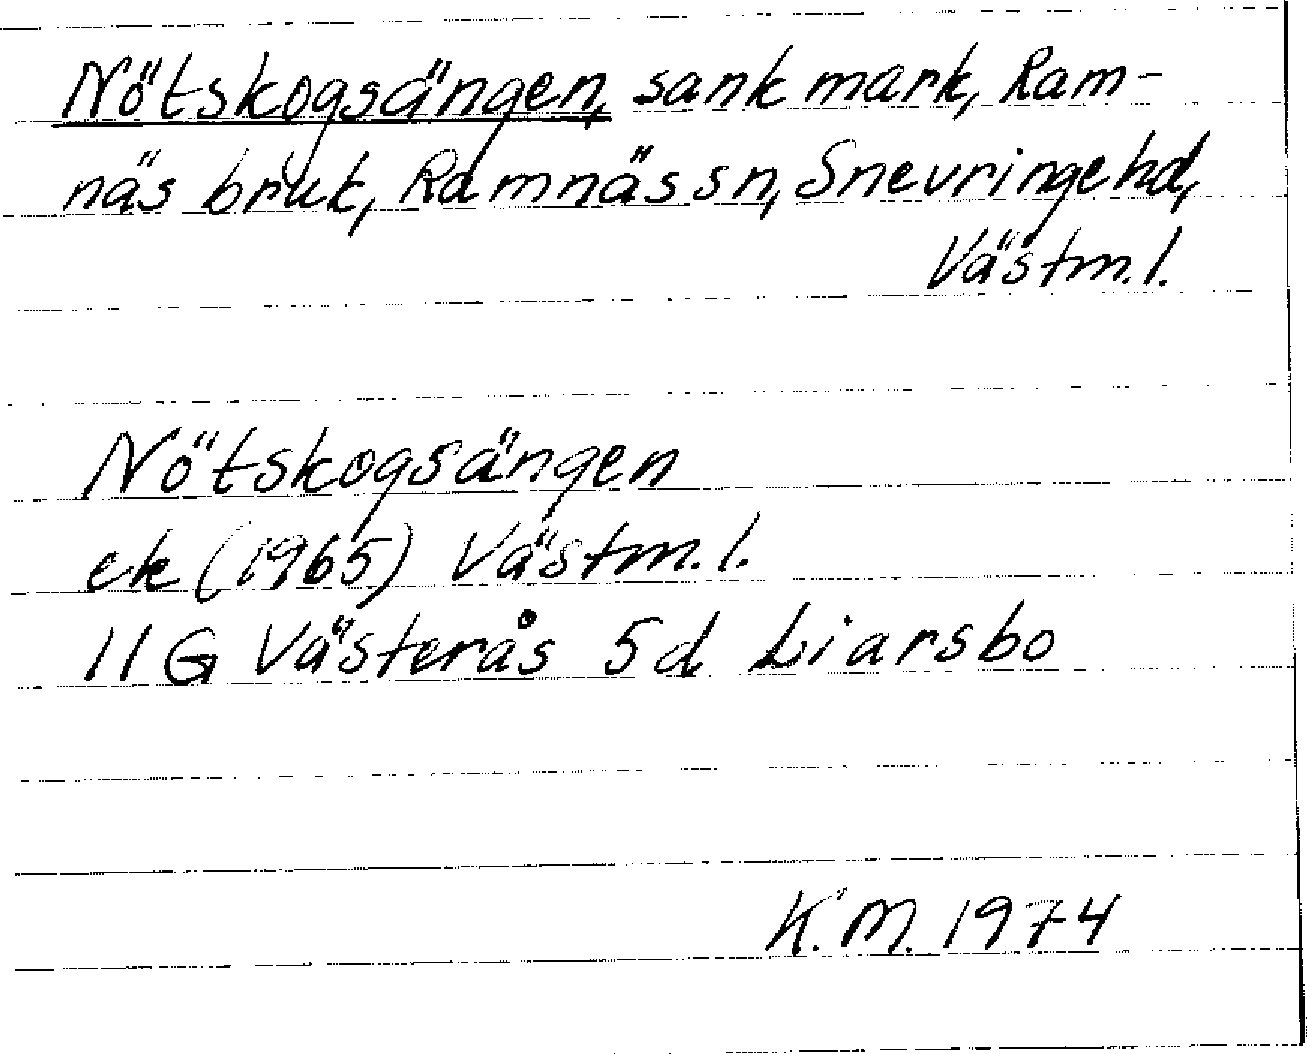 Nötskogsängen, sank mark, Ram-
näs bruk, Ramnäs sn, Snevringe hd,
Västm. l.
Nötskogsängen
ek (1965) Västm. l.
11 G Västerås 5d Liarsbo
K. M. 1974